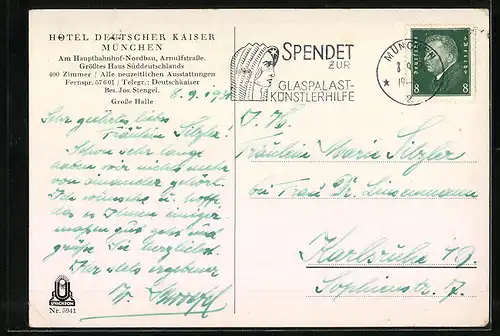 HOTEL DEUTSCHER KAISER
MÜNCHEN
Am Hauptbahnhof-Nordbau, Arnulfstraße.
Größtes Haus Süddeutschlands
400 Zimmer / Alle neuzeitlichen Ausstattungen
Fernspr. 57601 / Telegr.: Deutschkaiser
Bes. Jos. Stengel.
Große Halle
8.9.1931
Sehr geehrtes liebes
Fräulein Sitzler!
Schon sehr lange
haben wir nichts mehr
von einander gehört.
Ich wünsche u. hoffe,
das es Ihnen einiger-
maßen gut geht und
grüße Sie herzlichst.
Ihr stets ergebener
Nr. 5941
SPENDET
ZUR
GLASPALAST-
KÜNSTLERHILFE
MÜNCHEN
8
Deutsches Reich
8 8
Fräulein Marie Sitzler
bei Frau Dr.
Karlsruhe 19.
Sophienstr. 7.